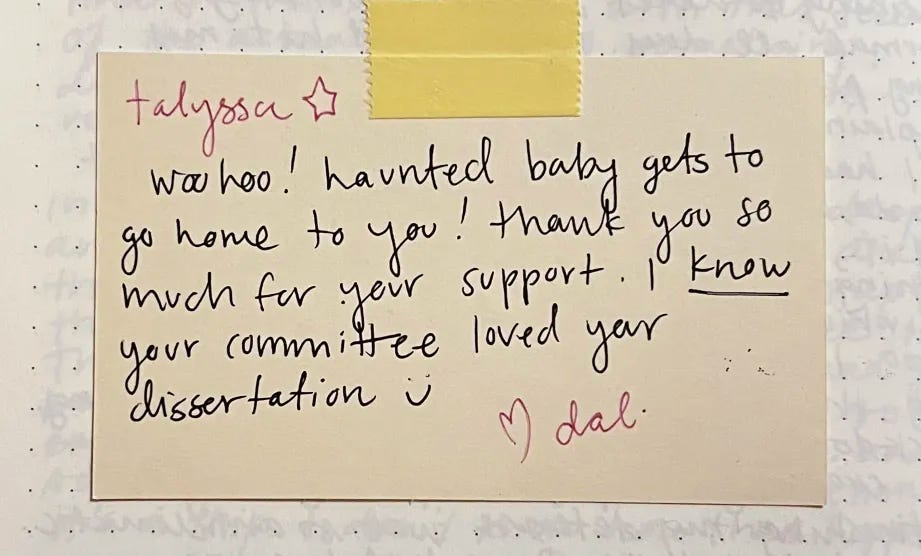 talyssa ☆
woohoo! haunted baby gets to
go home to you! thank you so
much for your support. I know
your committee loved your
dissertation ü
♡ dal.